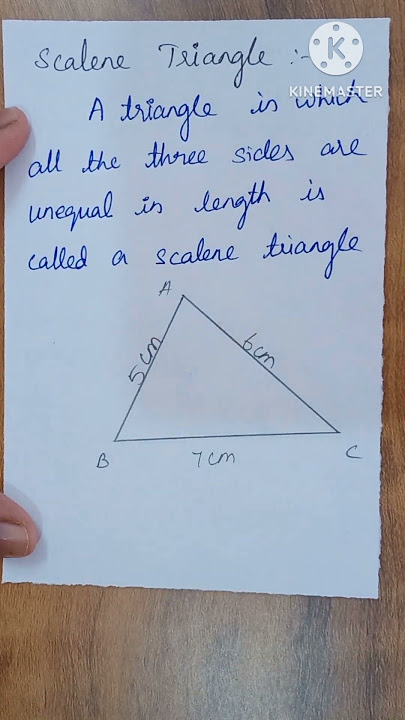 Scalene Triangle :-
KINEMASTER
A triangle is which
all the three sides are
unequal in length is
called a scalene triangle
A
5cm
6cm
B
7cm
C